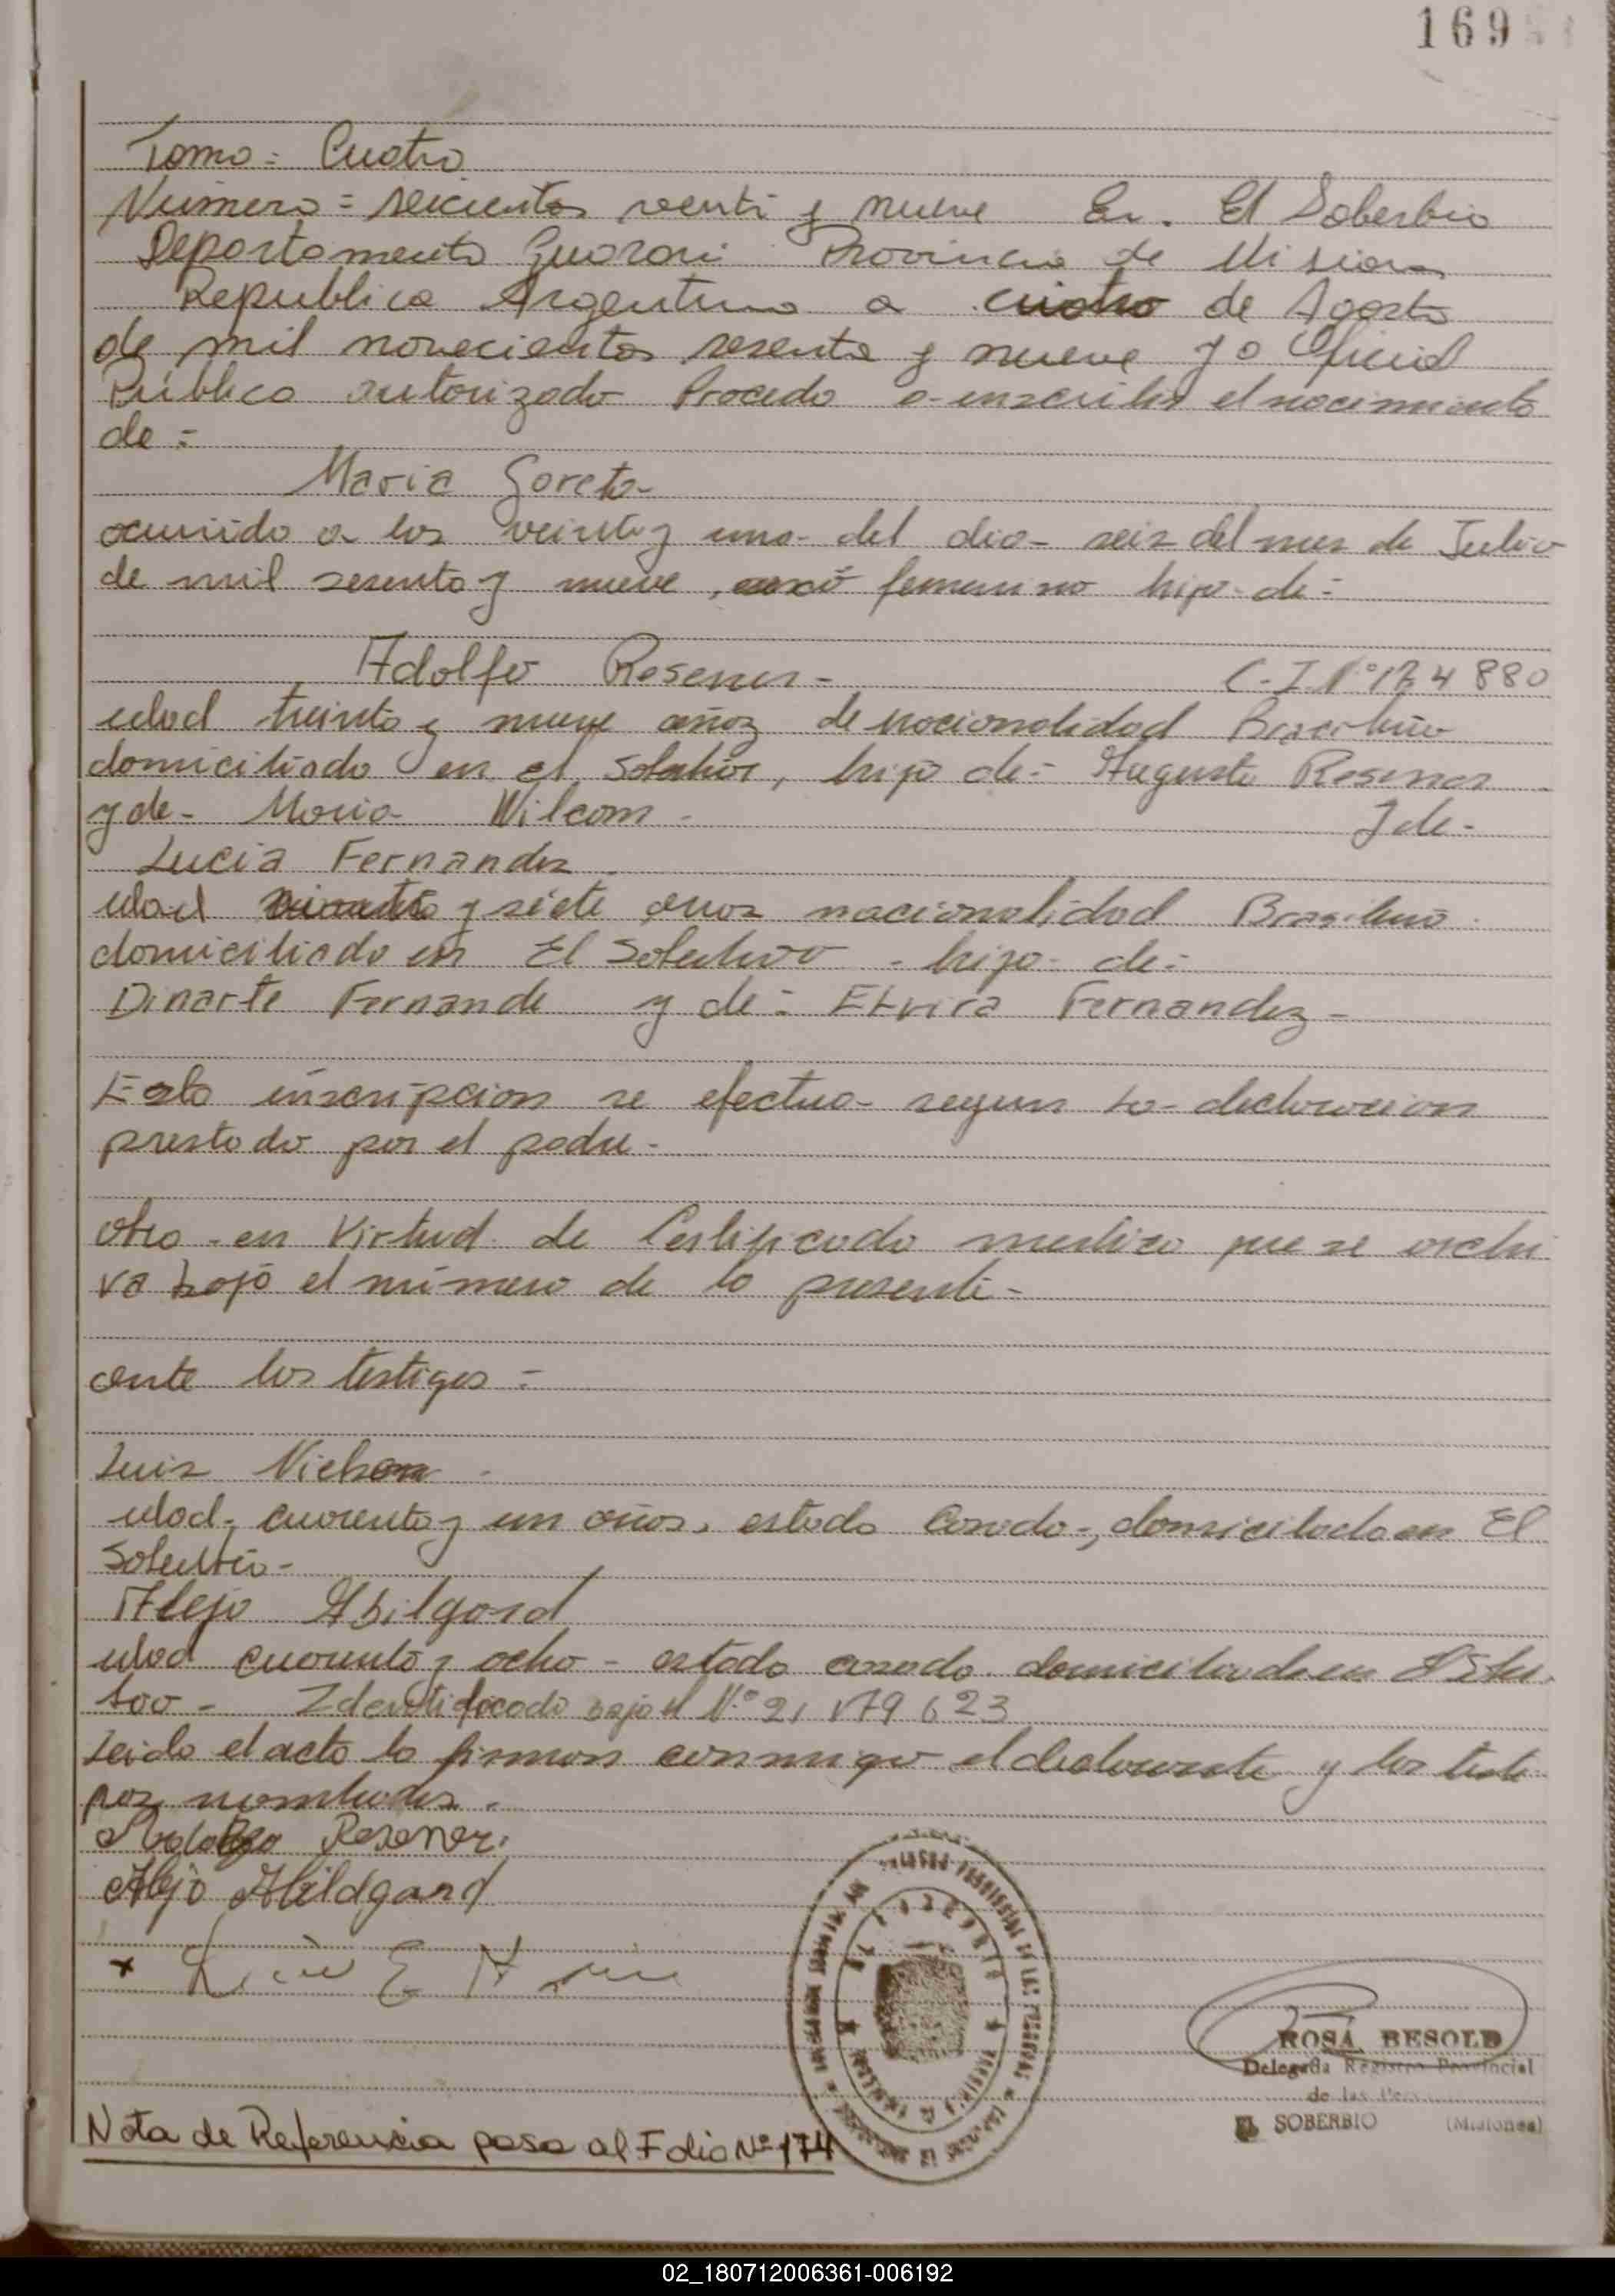 169
Tomo = Cuatro
Número = seicientos venti y nueve En. El Soberbio
Departamento Guarani Provincia de Mision
Republica Argentina a cuatro de Agosto
de mil novecientos sesenta y nueve yo Oficial
Publico autorizado Procedo a inscribir el nacimiento
de =
Maria Goreto-
ocurrido a los veinte y una del dia seis del mes de Julio
de mil sesenta y nueve, sexo femenino hijo de =
Adolfo Resener - C.I.Nº 174880
edad treinta y nueve años de nacionalidad Brasileño
domiciliado en el Soberbio, hijo de = Augusto Resener
y de - Maria Wilcom - y de -
Lucia Fernandez
edad y siete años nacionalidad Brasileño
domiciliado en El Soberbio - hijo de =
Dinarte Fernande y de = Elvira Fernandez -
Esta inscripcion se efectua segun la declaracion
prestado por el padre -
otro - en Virtud de Certificado medico que se archi
va bajo el número de la presente -
ante los testigos =
Luis
edad, cuarenta y un años, estado casado, domiciliado en El
Soberbio -
Alejo Abilgard
edad cuarenta y ocho - estado casado domiciliado en
Identificado bajo el Nº
Leida el acta la firman conmigo el declarante y los testi
gos nombrados -
Resener
Alejo Abildgard
x
ROSA BESOLD
Delegada Registro Provincial
de las
EL SOBERBIO (Misiones)
Nota de Referencia pasa al Folio Nº 174
02_180712006361-006192